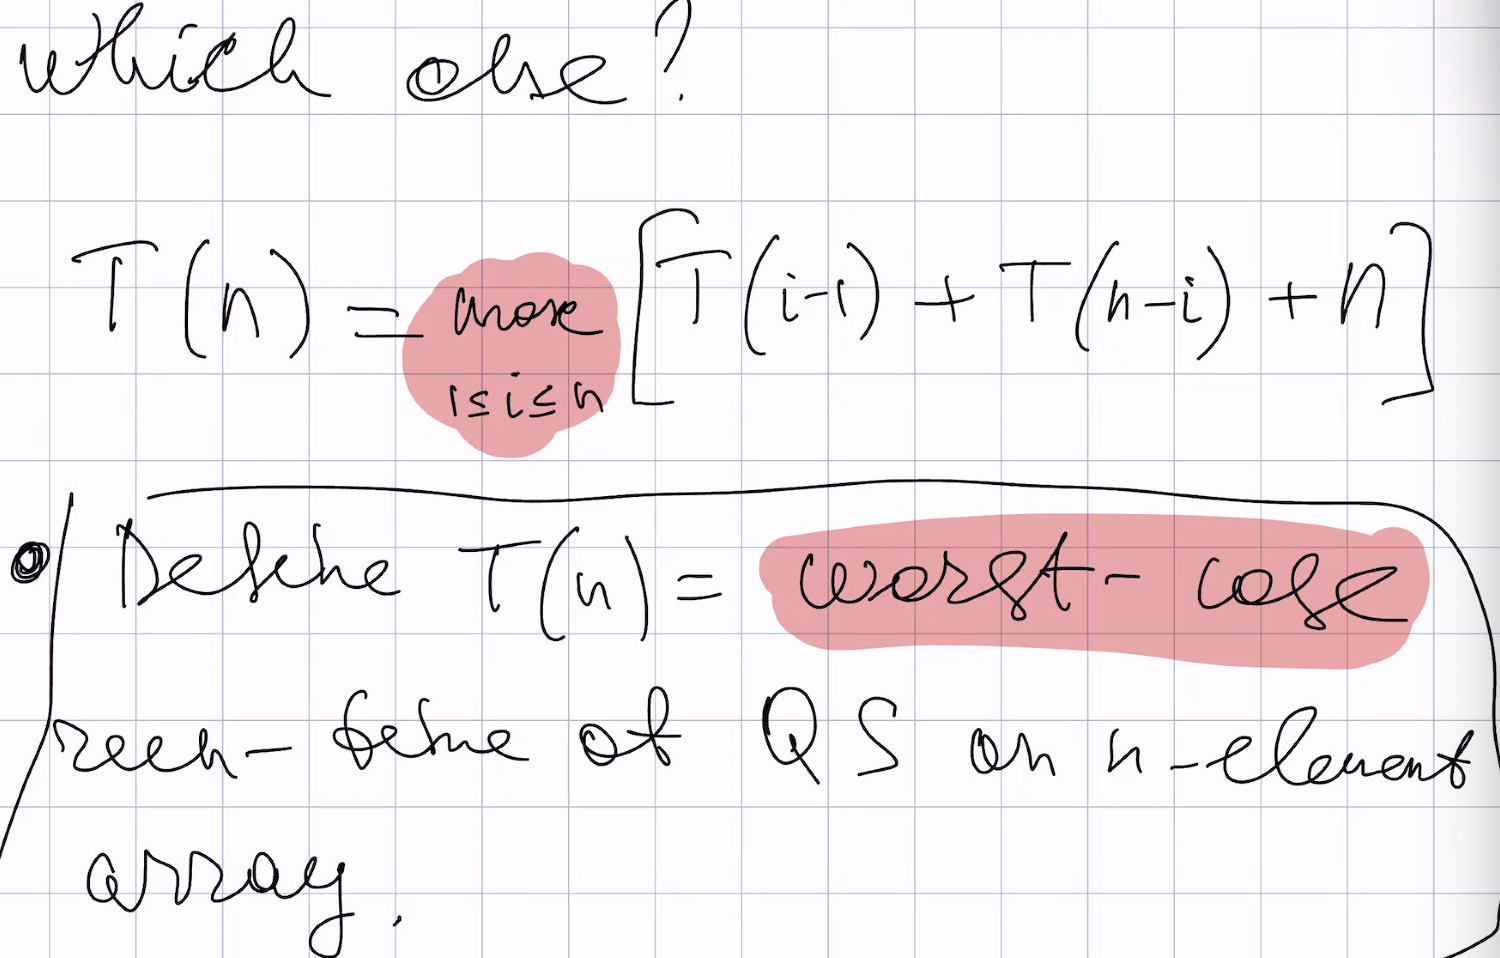 which else?
T(n) = max [T(i-1) + T(n-i) + n]
1≤i≤n
Define T(n) = worst-case
run-time of QS on n-element
array.